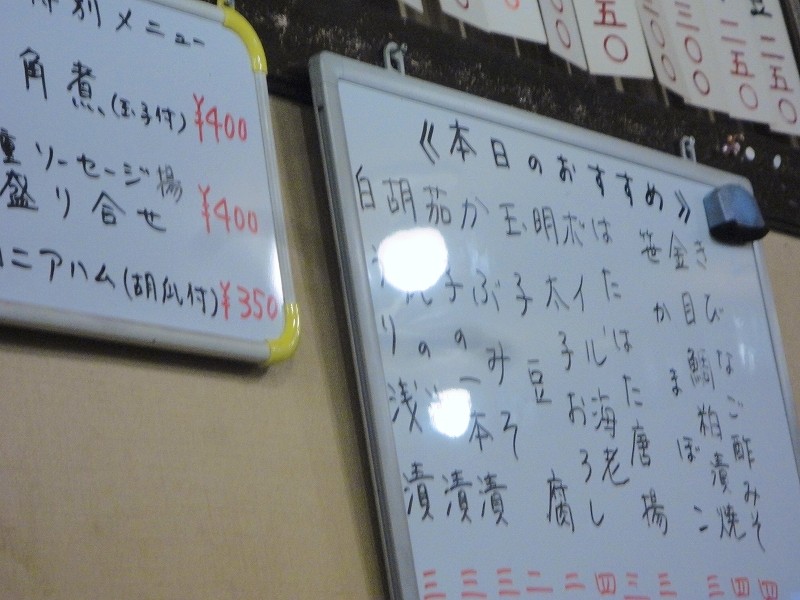 別メニュー
角煮(玉子付) ¥400
ソーセージ揚
盛り合せ ¥400
ニアハム(胡瓜付) ¥350
二五〇
二五〇
三〇〇
〇〇
五〇
《本日のおすすめ》
きびなご酢みそ 四
金目鯛粕漬焼 四
笹かまぼこ 三
はたはた唐揚 三
ボイル海老 三
明太子おろし 四
玉子豆腐 二
かぶみそ漬 二
茄子の一本漬 三
胡 の 漬 三
白 り浅漬 三